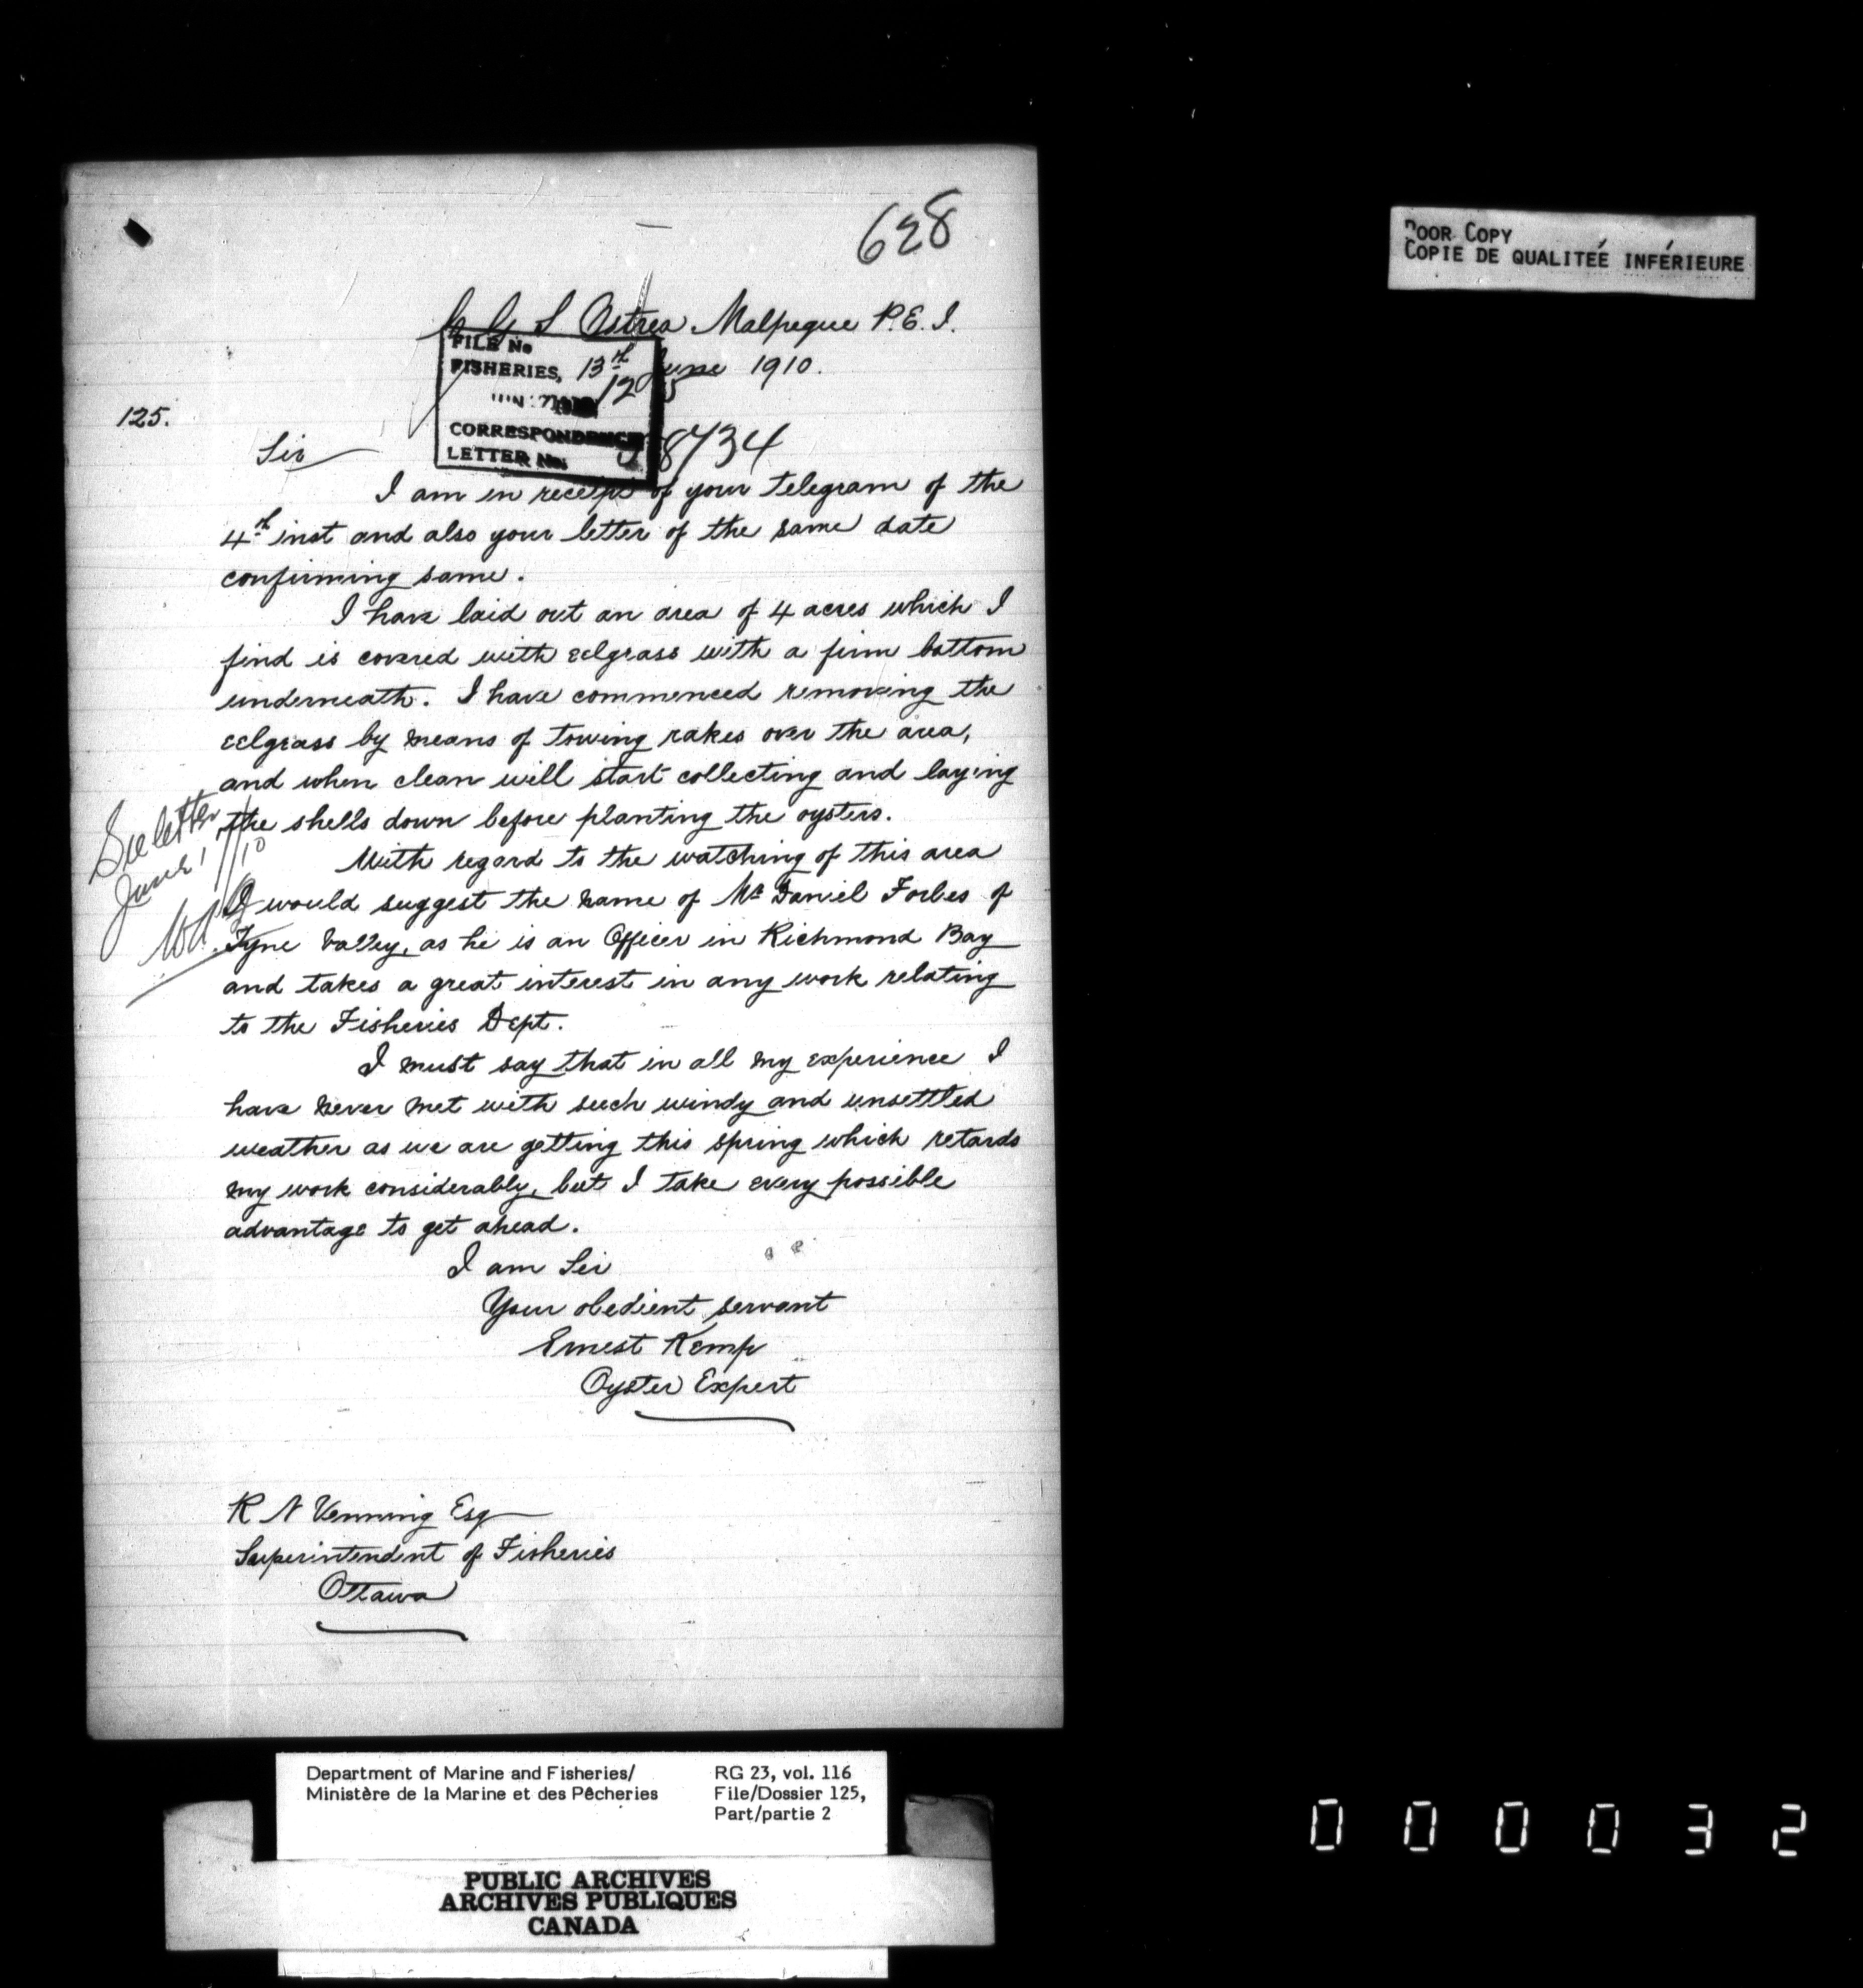 628
POOR COPY
COPIE DE QUALITEÉ INFÉRIEURE
C G S Ostrea Malpeque P.E.I.
FILE No
FISHERIES, 13th June 1910.
125
125.
CORRESPONDENCE
LETTER No. 8734
Sir
I am in receipt of your telegram of the
4th inst and also your letter of the same date
confirming same.
I have laid out an area of 4 acres which I
find is covered with eelgrass with a firm bottom
underneath. I have commenced removing the
eelgrass by means of towing rakes over the area,
and when clean will start collecting and laying
the shells down before planting the oysters.
See letter
June 17/10
With regard to the watching of this area
I would suggest the name of Mr Daniel Forbes of
Tyne Valley, as he is an Officer in Richmond Bay
and takes a great interest in any work relating
to the Fisheries Dept.
I must say that in all my experience I
have never met with such windy and unsettled
weather as we are getting this spring which retards
my work considerably, but I take every possible
advantage to get ahead.
I am Sir
Your obedient servant
Ernest Kemp
Oyster Expert
R N Venning Esq
Superintendent of Fisheries
Ottawa
Department of Marine and Fisheries/
Ministère de la Marine et des Pêcheries
RG 23, vol. 116
File/Dossier 125,
Part/partie 2
PUBLIC ARCHIVES
ARCHIVES PUBLIQUES
CANADA
000032